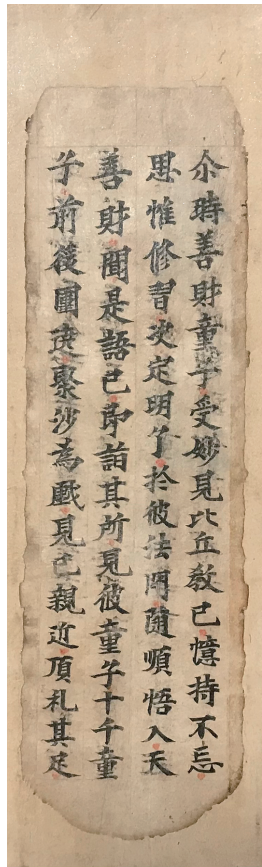 尒時善財童子受妙見比丘教已憶持不忘
思惟修習决定明了於彼法門随順悟入天
善財聞是語已即詣其所見彼童子十千童
子前後圍遶聚沙為戲見已親近頂礼其足